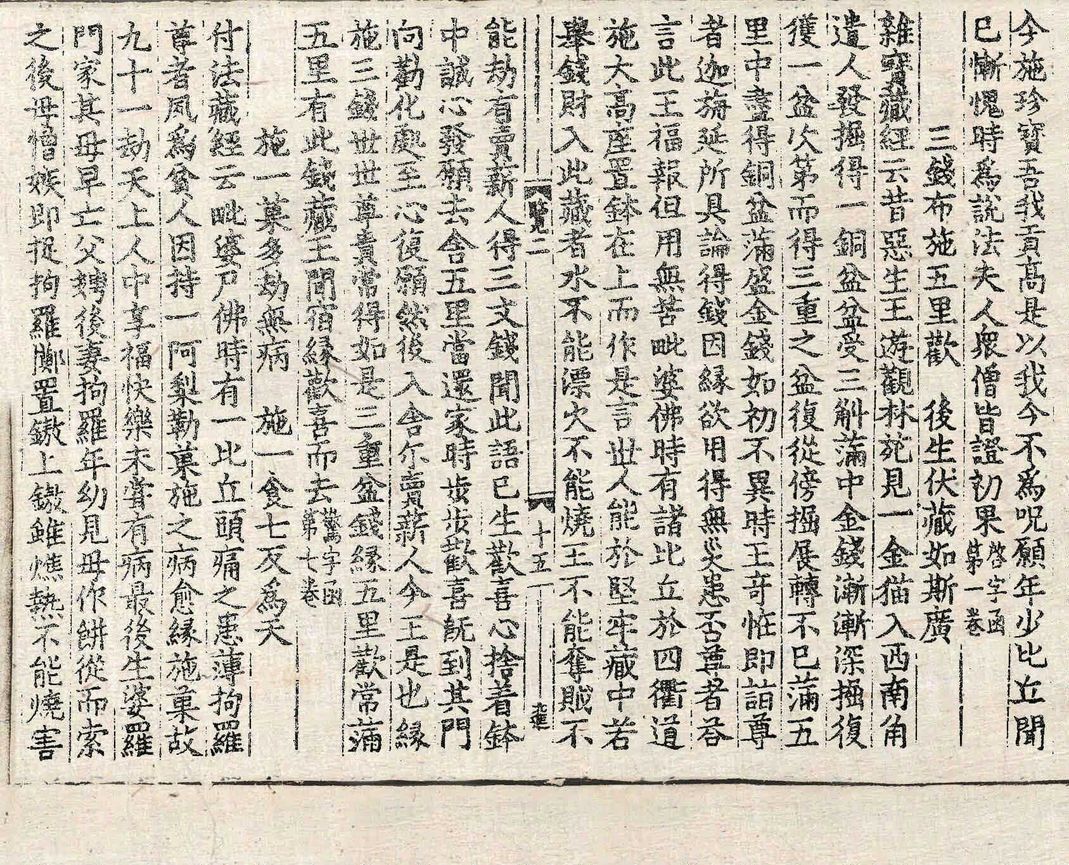 今施珍寶吾我貢高是以我今不爲呪願年少比丘聞
已慚愧時爲說法夫人衆僧皆證初果啓字函第一卷
三錢布施五里歡 後生伏藏如斯廣
雜寶藏經云昔惡生王遊觀林苑見一金猫入西南角
遣人發掘得一銅盆盆受三斛滿中金錢漸漸深掘復
獲一盆次第而得三重之盆復從傍掘展轉不已滿五
里中盡得銅盆滿盛金錢如初不異時王奇恠即詣尊
者迦旃延所具論得錢因緣欲用得無災患否尊者荅
言此王福報但用無苦毗婆佛時有諸比丘於四衢道
施大高座置鉢在上而作是言世人能於堅牢藏中若
舉錢財入此藏者水不能漂火不能燒王不能奪賊不
覽二 十五
能劫有賣薪人得三文錢聞此語已生歡喜心捨着鉢
中誠心發願去舍五里當還家時步步歡喜旣到其門
向勸化處至心復願然後入舍尓賣薪人今王是也緣
施三錢世世尊貴常得如是三重盆錢緣五里歡常滿
五里有此錢藏王聞宿緣歡喜而去驚字函第七卷
施一菓多劫無病 施一食七反爲天
付法藏經云毗婆尸佛時有一比丘頭痛之患薄拘羅
尊者夙爲貧人因持一阿梨勒菓施之病愈緣施菓故
九十一劫天上人中享福快樂未嘗有病最後生婆羅
門家其母早亡父娉後妻拘羅年幼見母作餠從而索
之後母憎嫉即捉拘羅擲置鏊上鏊雖燋熱不能燒害